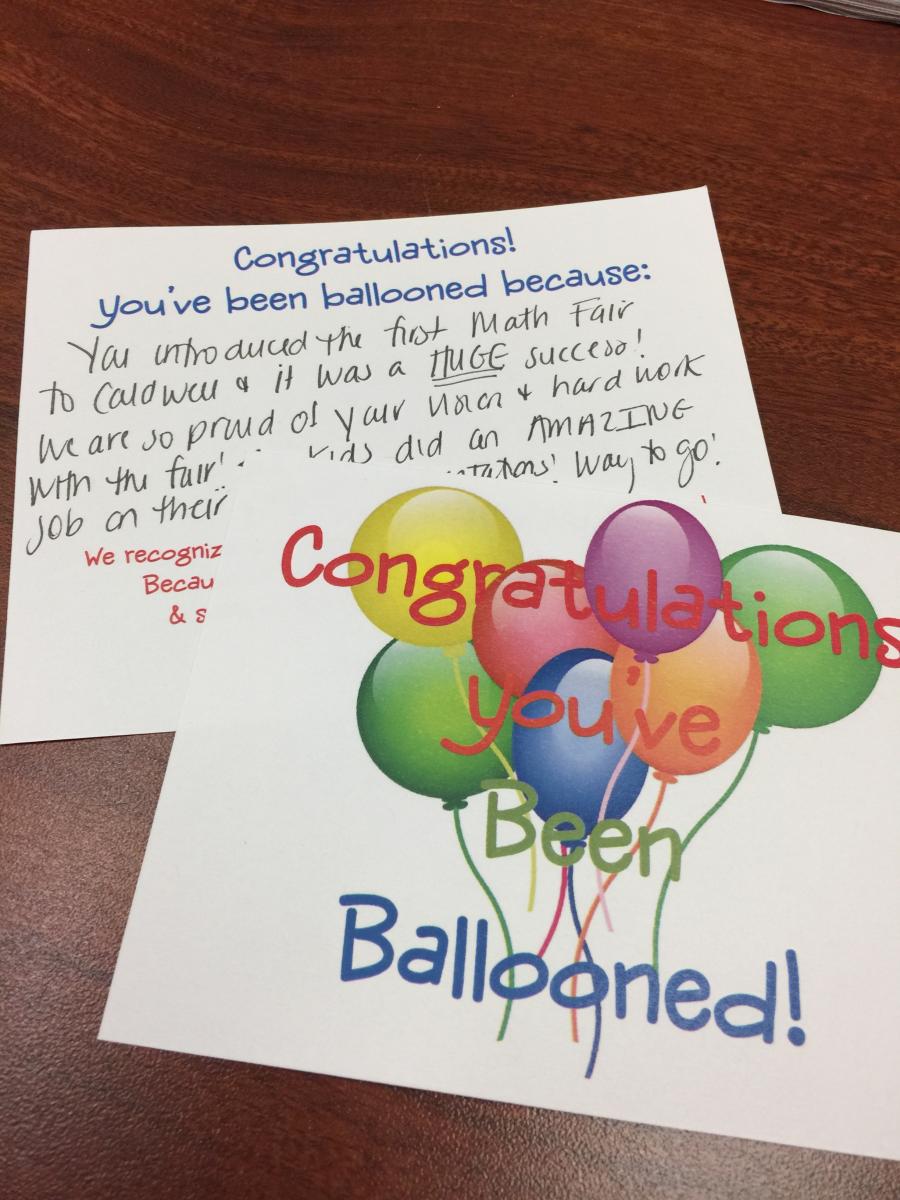 Congratulations!
You've been ballooned because:
You introduced the first Math Fair
to Caldwell & it was a HUGE success!
We are so proud of your vision & hard work
with the fair! kids did an AMAZING
job on their Way to go!
We recogniz
Becau
& s
Congratulations
You've
Been
Ballooned!